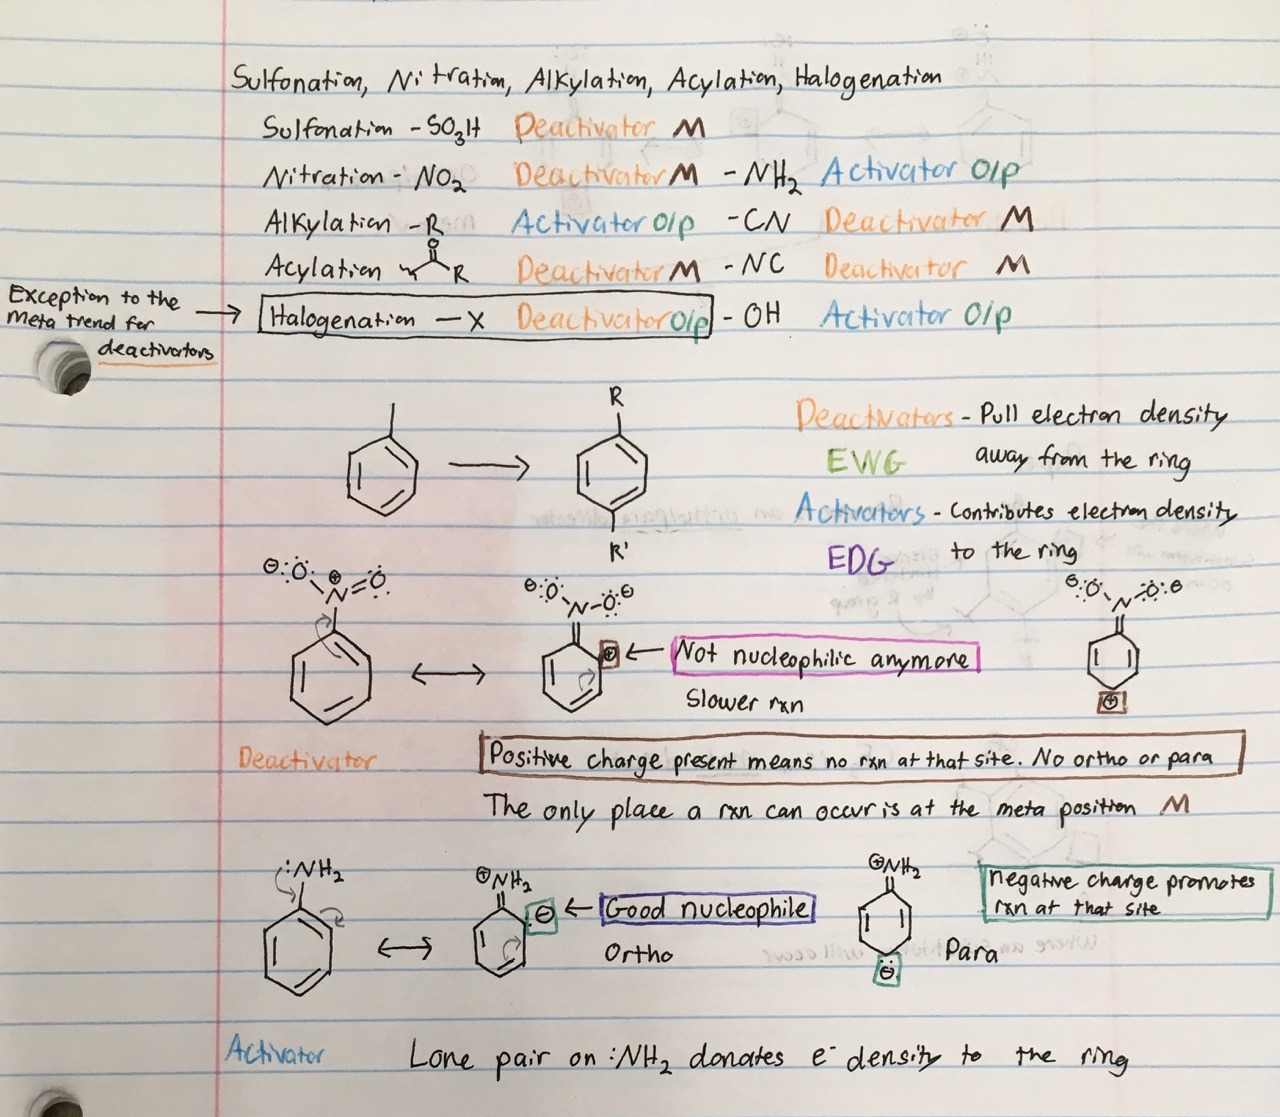 Sulfonation, Nitration, Alkylation, Acylation, Halogenation
Sulfonation -SO₃H Deactivator M
Nitration - NO₂ Deactivator M -NH₂ Activator O/p
Alkylation -R Activator O/p -CN Deactivator M
Acylation O R Deactivator M -NC Deactivator M
Exception to the meta trend for deactivators →
Halogenation —X Deactivator O/p - OH Activator O/p
R
R'
Deactivators - Pull electron density
EWG away from the ring
Activators - Contributes electron density
EDG to the ring
⊖:Ö: ⊕ N=Ö:
⊖:Ö: N-Ö:⊖
⊖:Ö: N-Ö:⊖
⊕ ← Not nucleophilic anymore
Slower rxn
⊕
Deactivator
Positive charge present means no rxn at that site. No ortho or para
The only place a rxn can occur is at the meta position M
:NH₂
⊕NH₂
⊖ ← Good nucleophile
Ortho
⊕NH₂
⊖
Para
negative charge promotes
rxn at that site
Activator Lone pair on :NH₂ donates e⁻ density to the ring